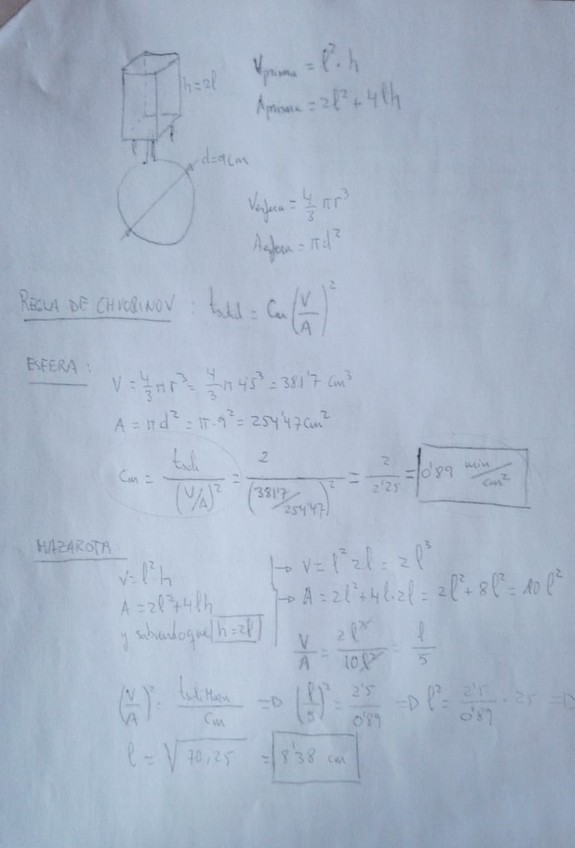 h=2l
V prisma = l²·h
A prisma = 2l²+4lh
d=9cm
V esfera = 4/3 πr³
A esfera = πd²
REGLA DE CHVORINOV : t sol = Cm (V/A)²
ESFERA :
V = 4/3 πr³ = 4/3 π 4'5³ = 381'7 cm³
A = πd² = π·9² = 254'47 cm²
Cm = t sol / (V/A)² = 2 / (381'7/254'47)² = 2/2'25 = 0'89 min/cm²
MAZAROTA
V = l²h
A = 2l²+4lh
y sabiendo que h=2l
→ V = l² 2l = 2l³
→ A = 2l²+4l·2l = 2l²+8l² = 10l²
V/A = 2l³/10l² = l/5
(V/A)² = t sol Maz / Cm => (l/5)² = 2'5/0'89 => l² = 2'5/0'89 · 25 =>
l = √70,25 = 8'38 cm